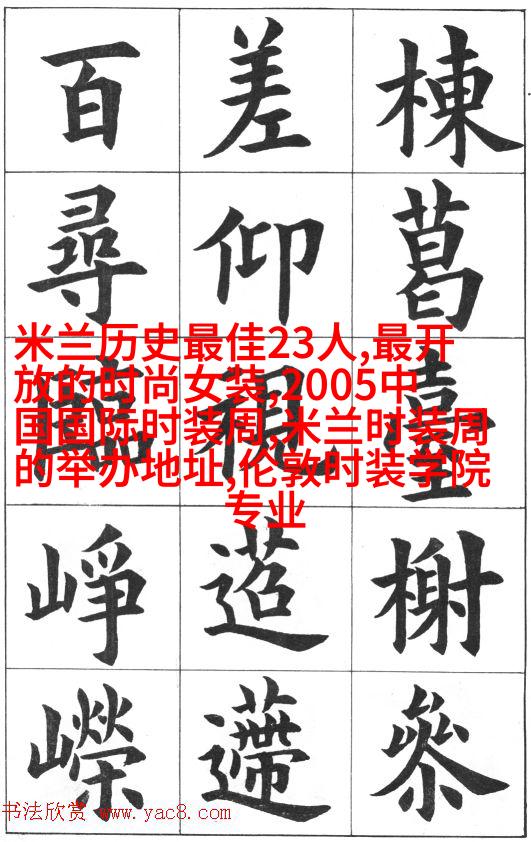 棟葛臺榭參
差仰視迢遰
百尋臨崢嶸
米兰历史最佳23人,最开
放的时尚女装,2005中
国国际时装周,米兰时装周
的举办地址,伦敦时装学院
专业
书法欣赏 www.yac8.com